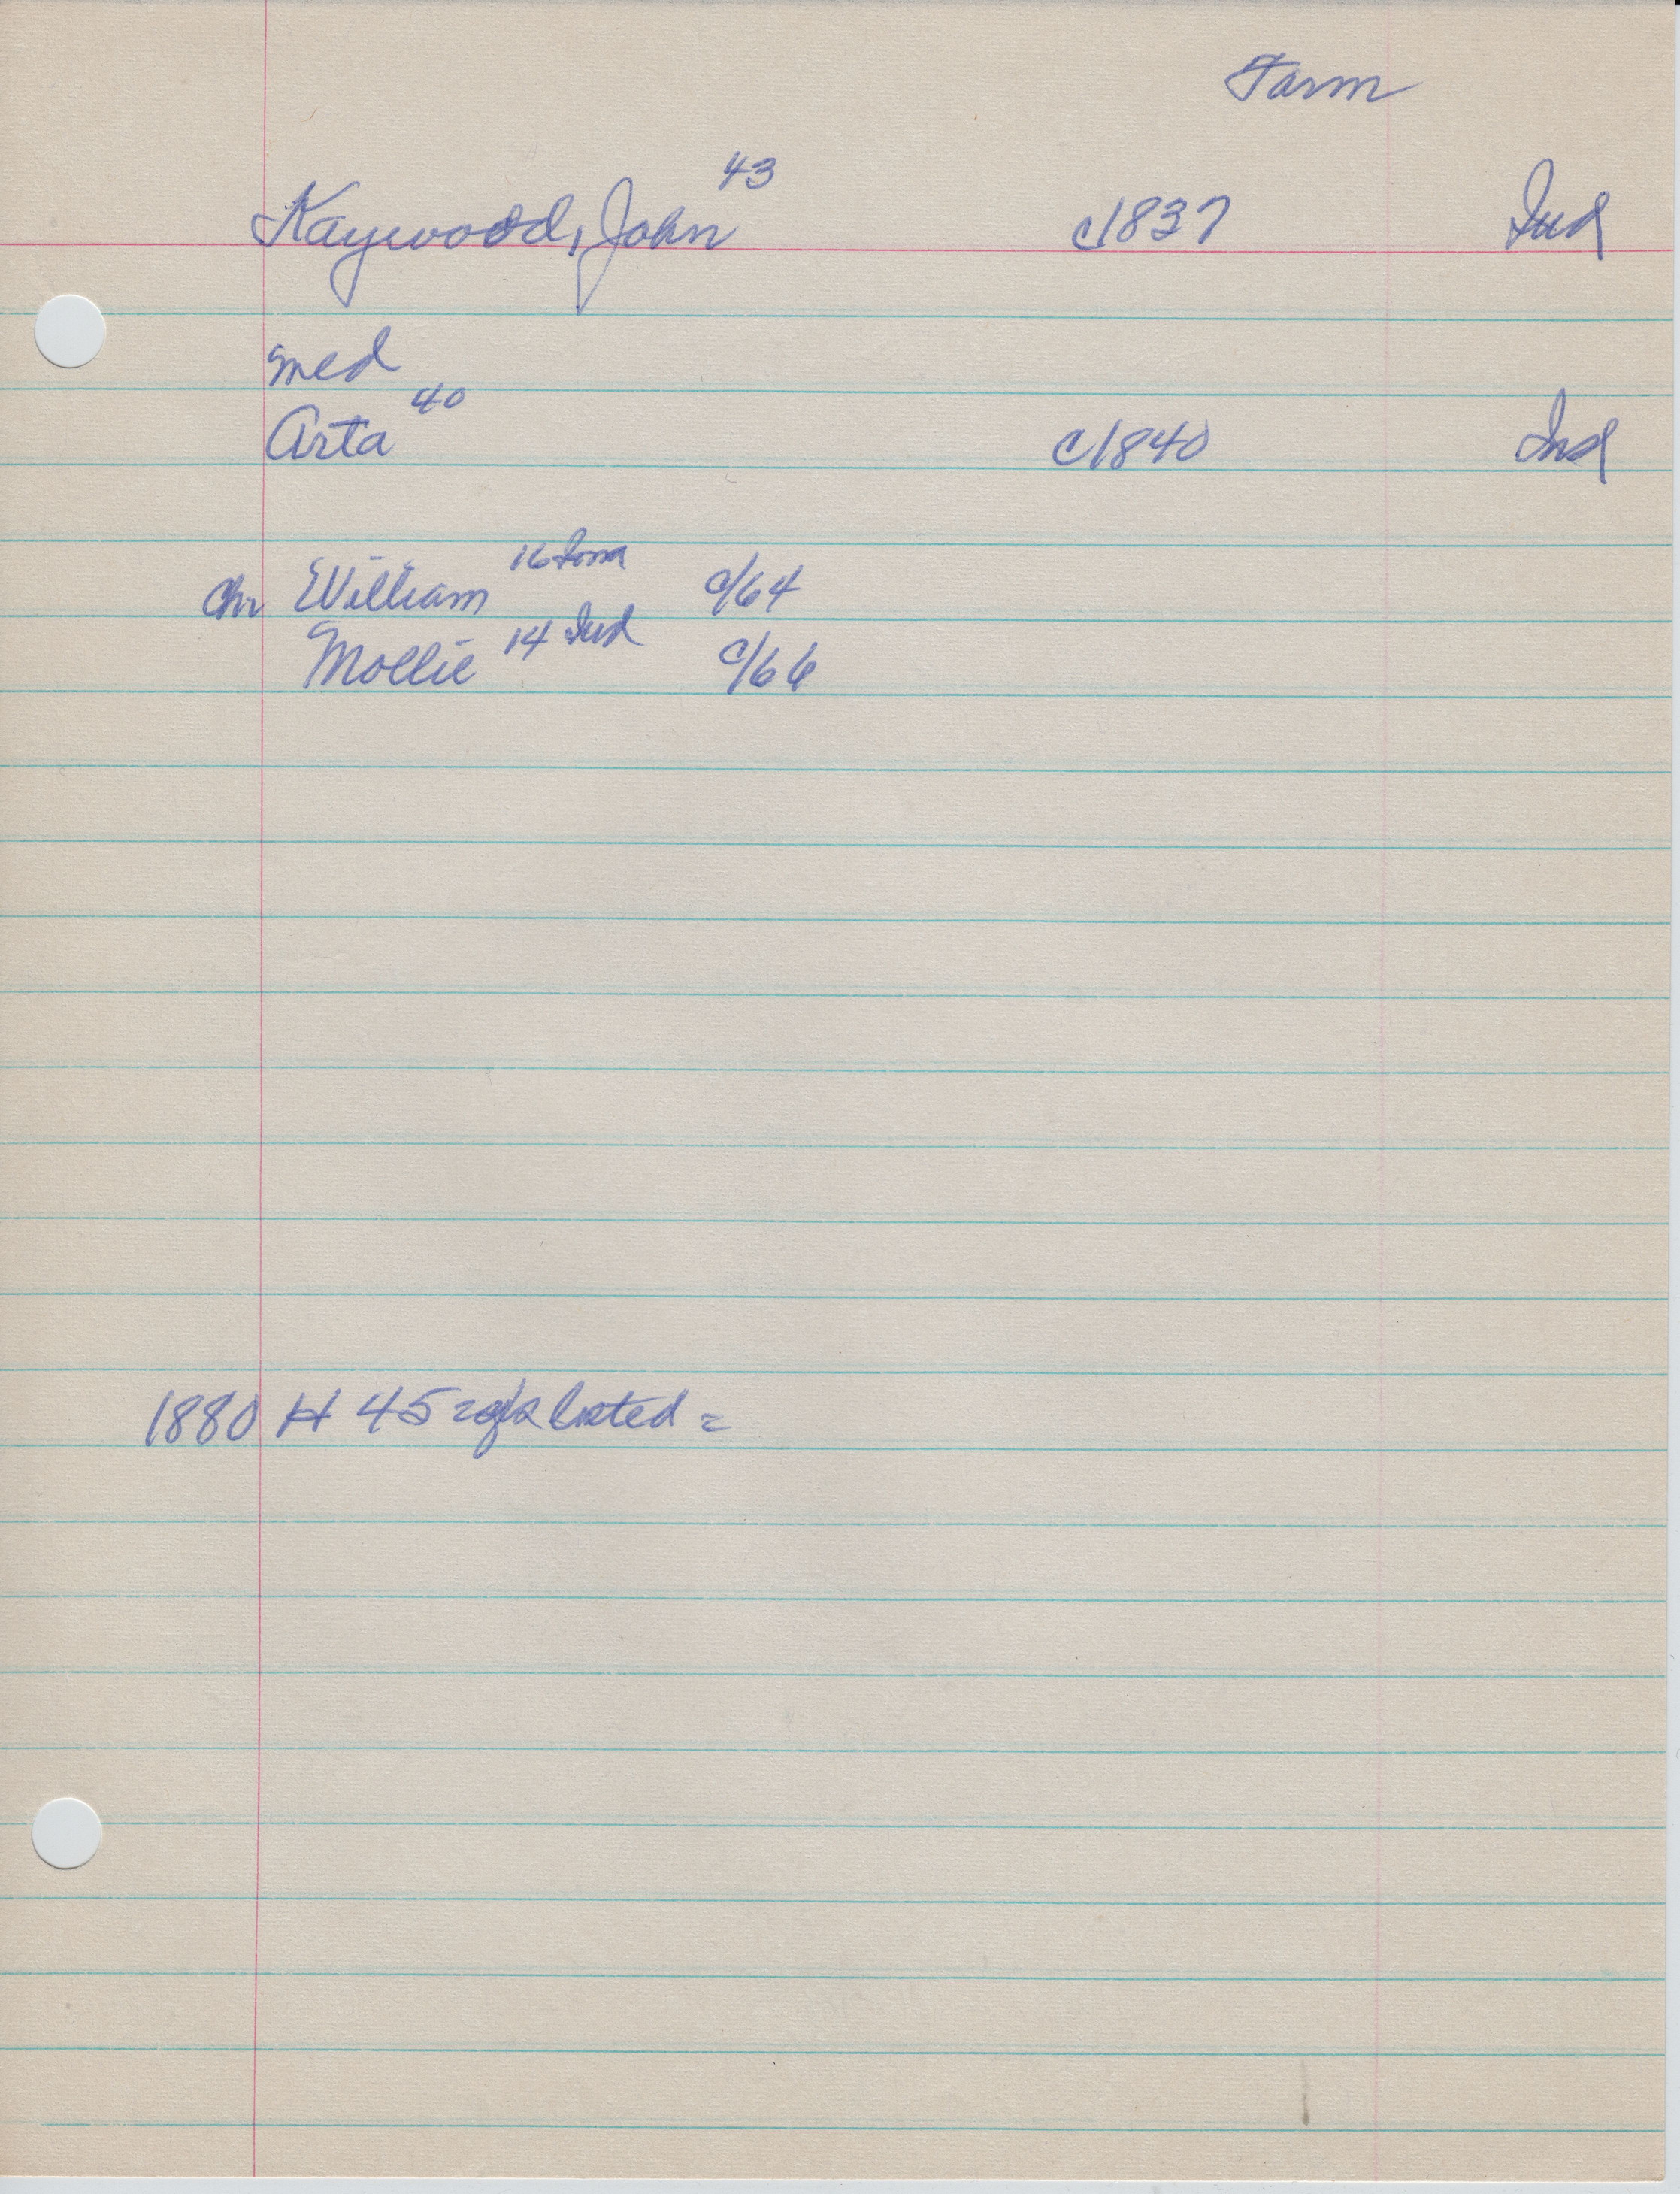 Farm
Kaywood, John 43 c1837 Ind
med
Arta 40 c1840 Ind
Chr William 16 Iowa c/64
Mollie 14 Ind c/66
1880 H 45 listed =